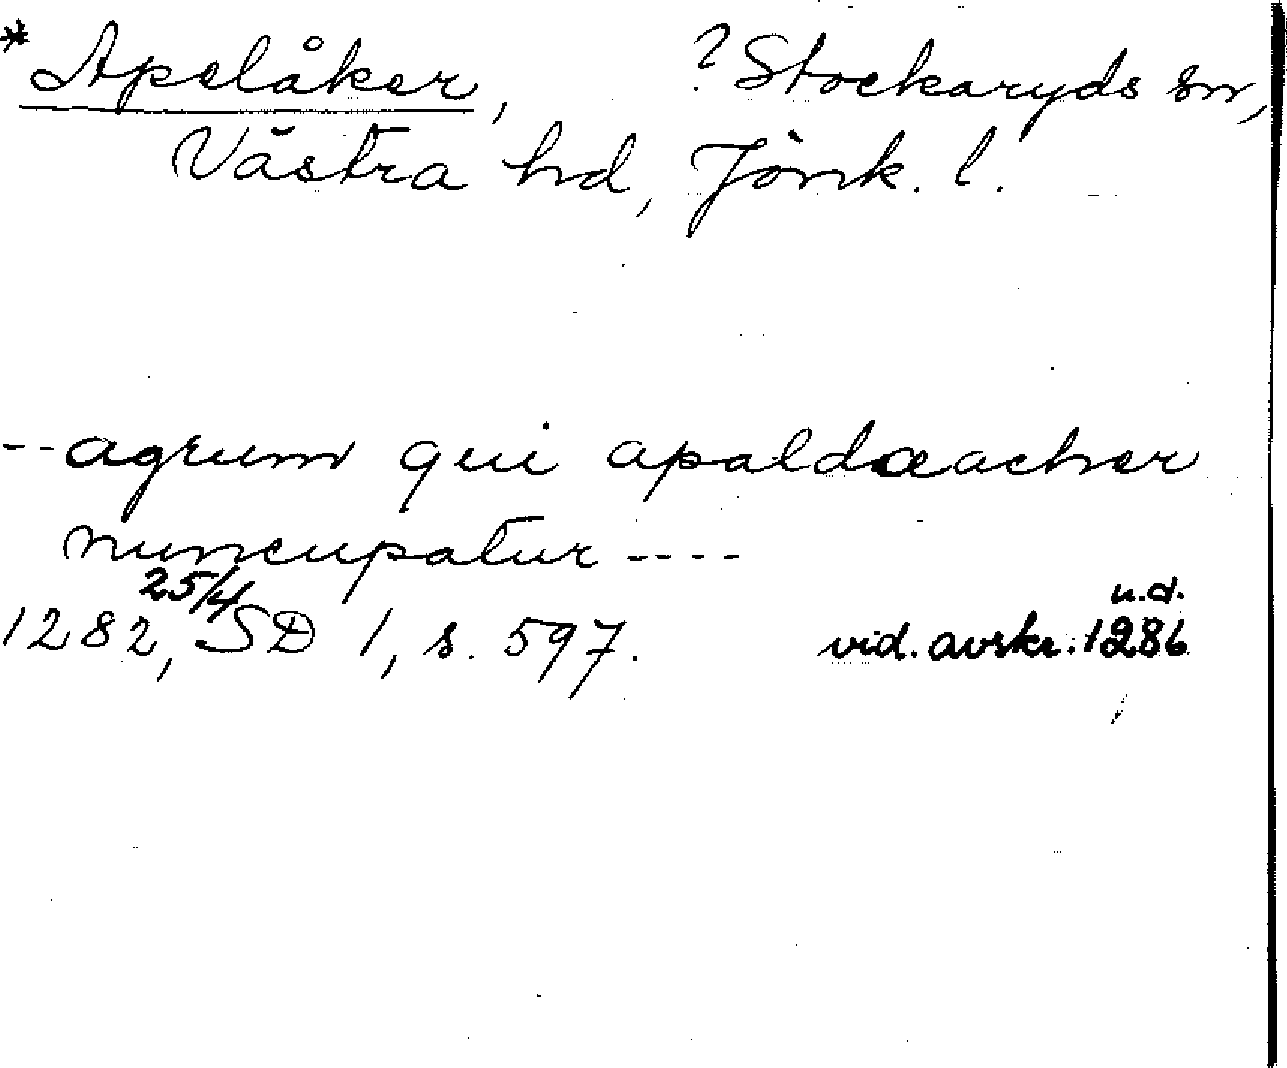 * Apelåker, ? Stockaryds sn,
Västra hd, Jönk. l.
--agrum qui apaldæacher
nuncupatur ----
1282, 25/4 SD 1, s. 597. vid. avskr. 1286 u.d.